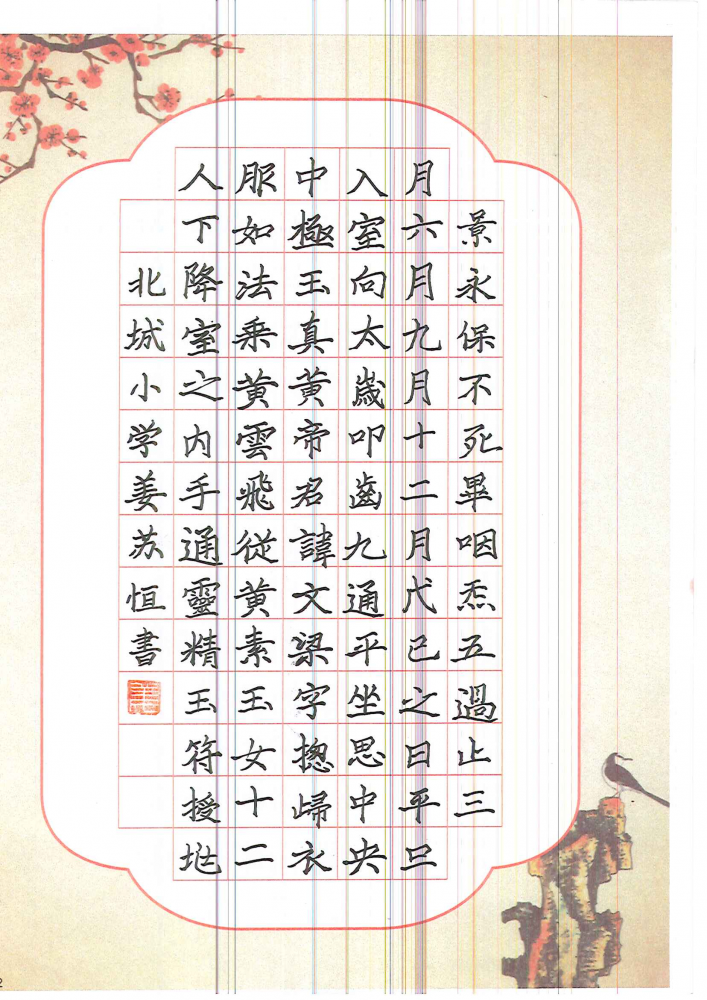 景永保不死畢咽炁五過止三
月六月九月十二月戊己之日平旦
入室向太歲叩齒九通平坐思中央
中極玉真黄帝君諱文梁字揔歸衣
服如法乗黄雲飛從黄素玉女十二
人下降室之内手通靈精玉符授地
北城小学姜苏恒書
2